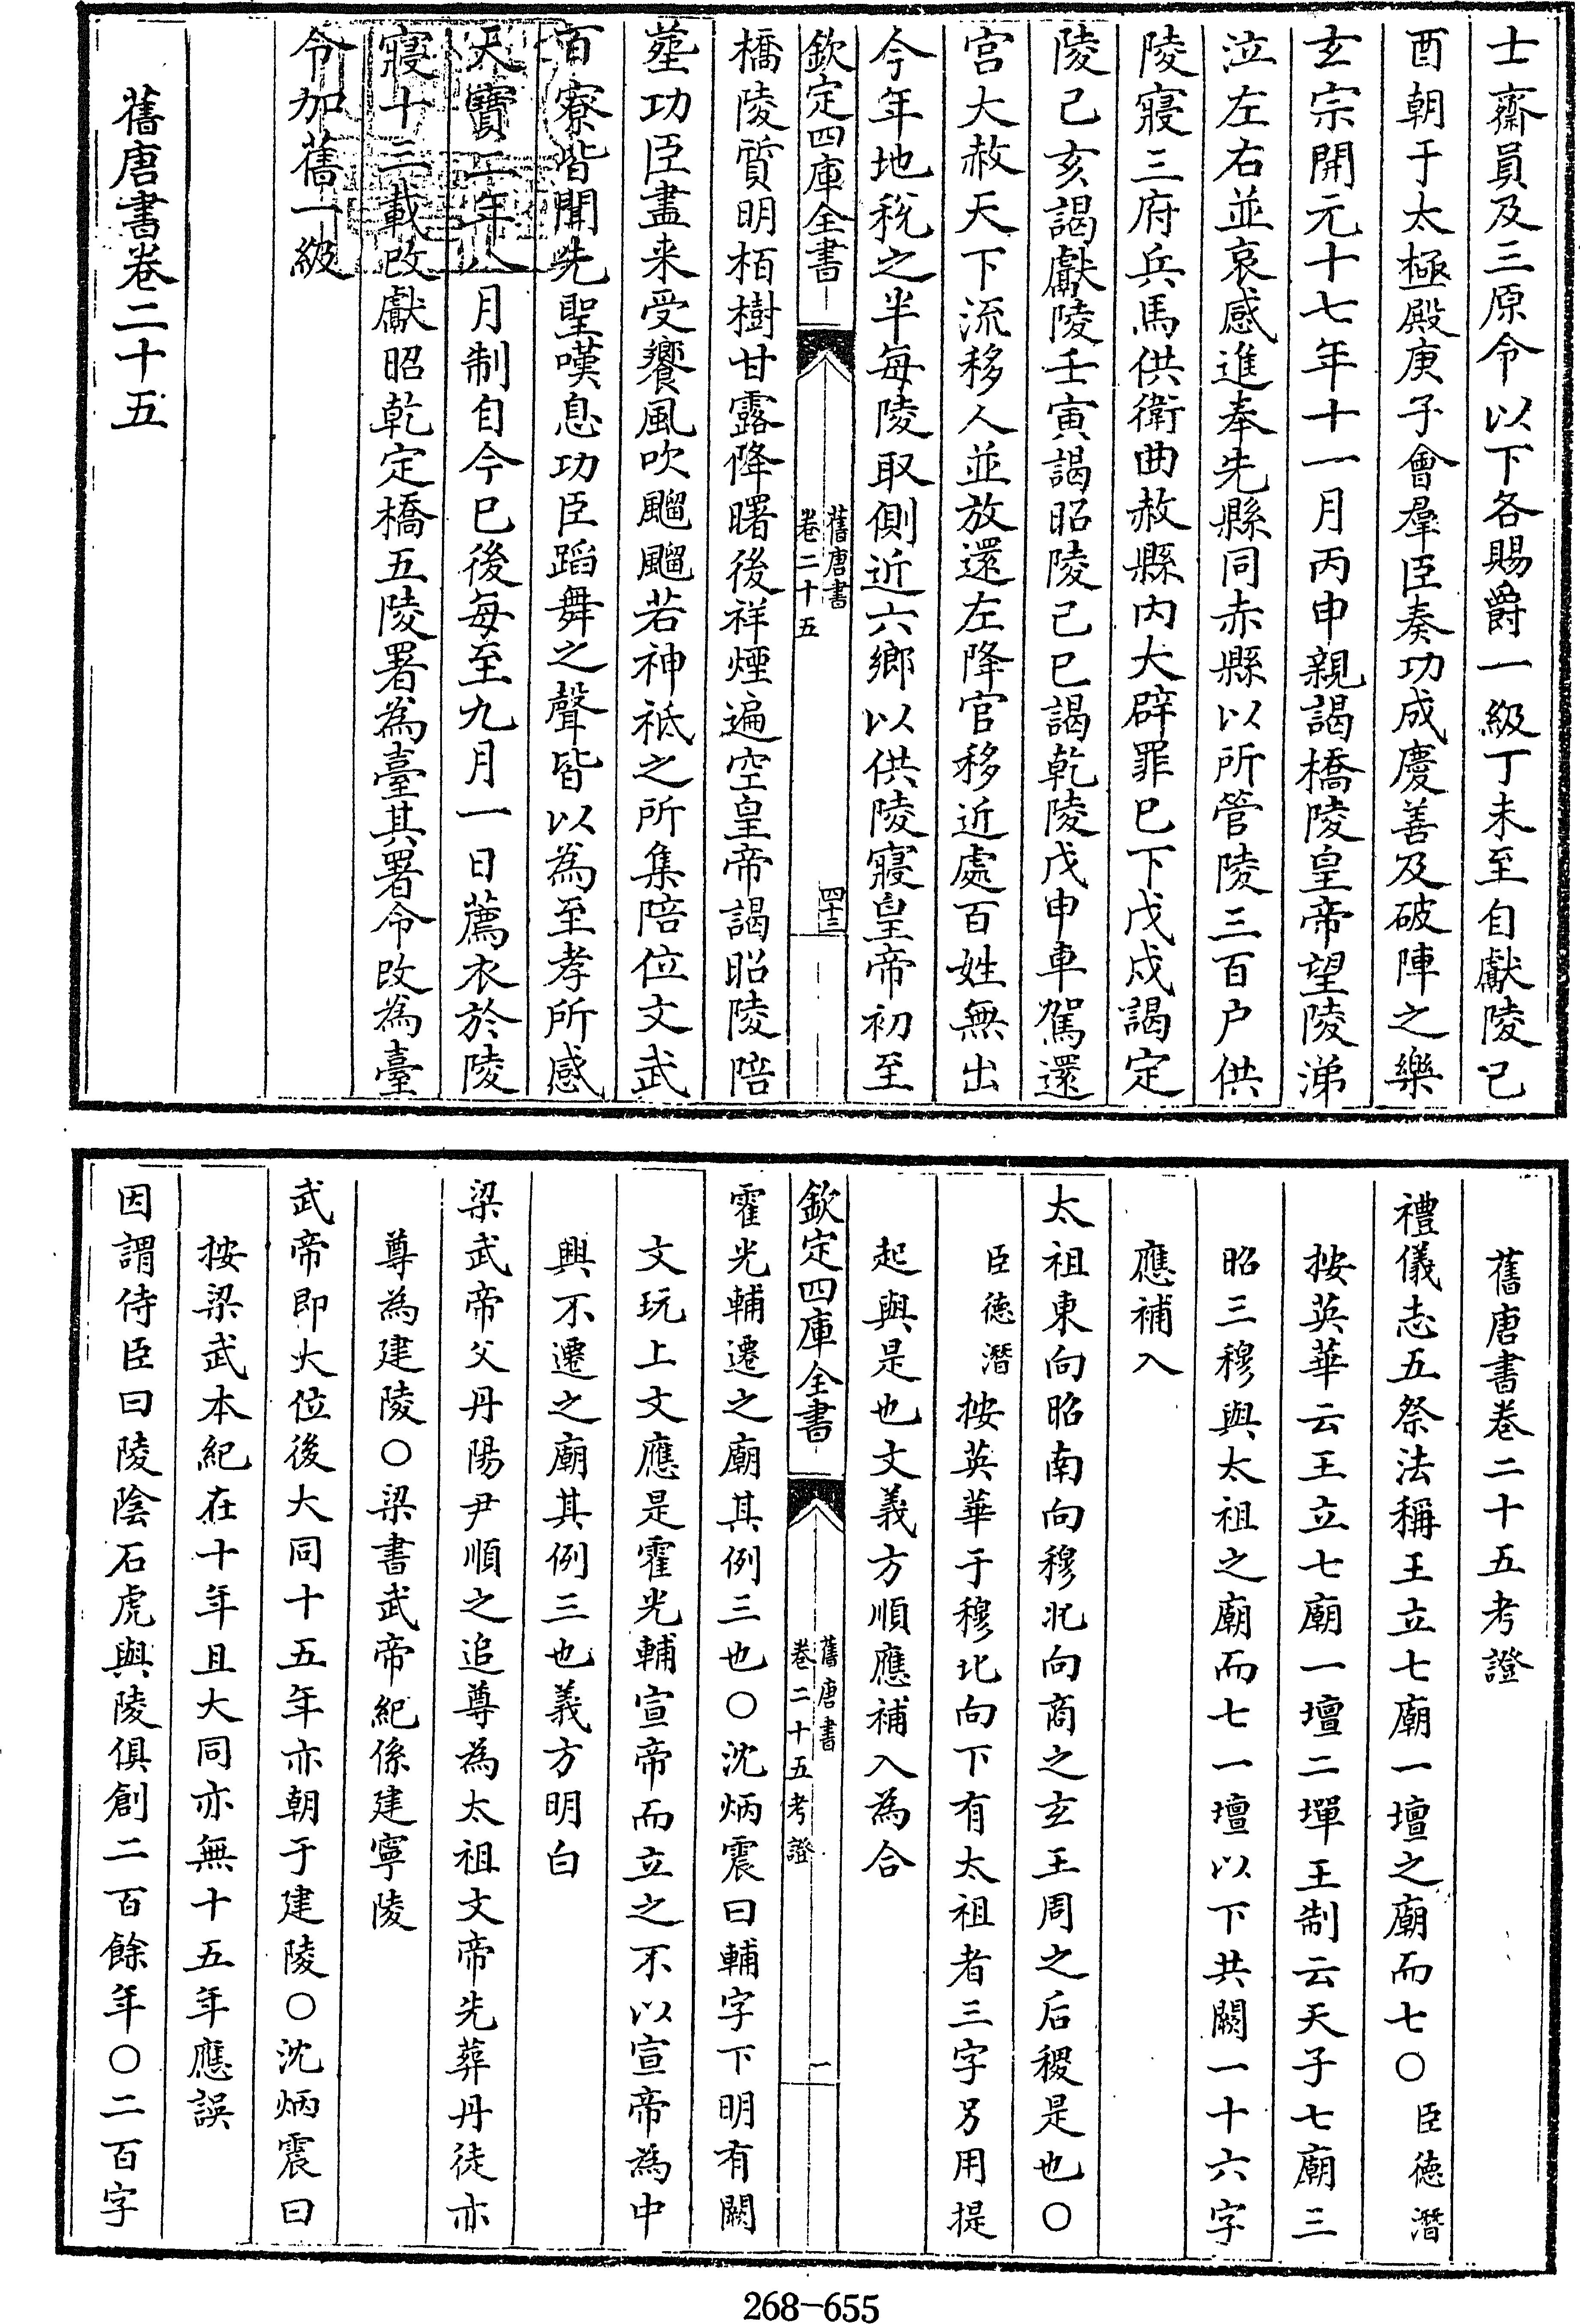 士齋員及三原令以下各賜爵一級丁未至自獻陵己
酉朝于太極殿庚子會羣臣奏功成慶善及破陣之樂
玄宗開元十七年十一月丙申親謁橋陵皇帝望陵涕
泣左右並哀感進奉先縣同赤縣以所管陵三百户供
陵寢三府兵馬供衛曲赦縣内大辟罪已下戊戌謁定
陵己亥謁獻陵壬寅謁昭陵己巳謁乾陵戊申車駕還
宫大赦天下流移人並放還左降官移近處百姓無出
今年地稅之半每陵取側近六鄉以供陵寢皇帝初至
欽定四庫全書
舊唐書
卷二十五
四十三
橋陵質明栢樹甘露降曙後祥煙遍空皇帝謁昭陵陪
塟功臣盡来受饗風吹飀飀若神祗之所集陪位文武
百寮皆聞先聖嘆息功臣蹈舞之聲皆以為至孝所感
天寶二年八月制自今已後每至九月一日薦衣於陵
寢十三載改獻昭乾定橋五陵署為臺其署令改為臺
令加舊一級
舊唐書卷二十五
舊唐書卷二十五考證
禮儀志五祭法稱王立七廟一壇之廟而七○臣德潛
按英華云王立七廟一壇二墠王制云天子七廟三
昭三穆與太祖之廟而七一壇以下共闕一十六字
應補入
太祖東向昭南向穆北向商之玄王周之后稷是也○
臣德潛按英華于穆北向下有太祖者三字另用提
起與是也文義方順應補入為合
欽定四庫全書
舊唐書
卷二十五考證
一
霍光輔遷之廟其例三也○沈炳震曰輔字下明有闕
文玩上文應是霍光輔宣帝而立之不以宣帝為中
興不遷之廟其例三也義方明白
梁武帝父丹陽尹順之追尊為太祖文帝先葬丹徒亦
尊為建陵○梁書武帝紀係建寧陵
武帝即大位後大同十五年亦朝于建陵○沈炳震曰
按梁武本紀在十年且大同亦無十五年應誤
因謂侍臣曰陵陰石虎與陵俱創二百餘年○二百字
268-655